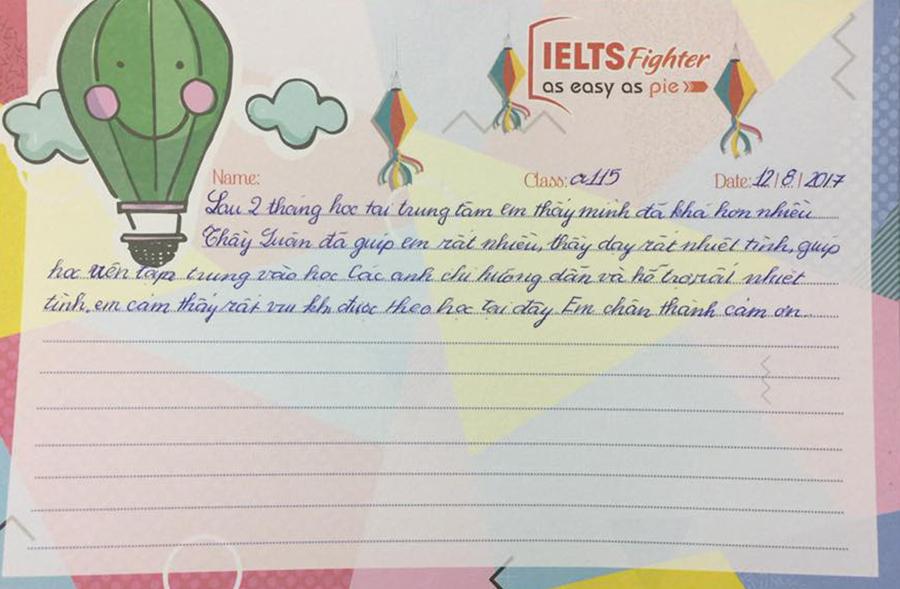 IELTS Fighter
as easy as pie
Name: Class: a115 Date: 12/8/2017
Sau 2 tháng học tại trung tâm em thấy mình đã khá hơn nhiều
Thầy Tuân đã giúp em rất nhiều, thầy dạy rất nhiệt tình, giúp
học viên tập trung vào học Các anh chị hướng dẫn và hỗ trợ rất nhiệt
tình, em cảm thấy rất vui khi được theo học tại đây. Em chân thành cảm ơn